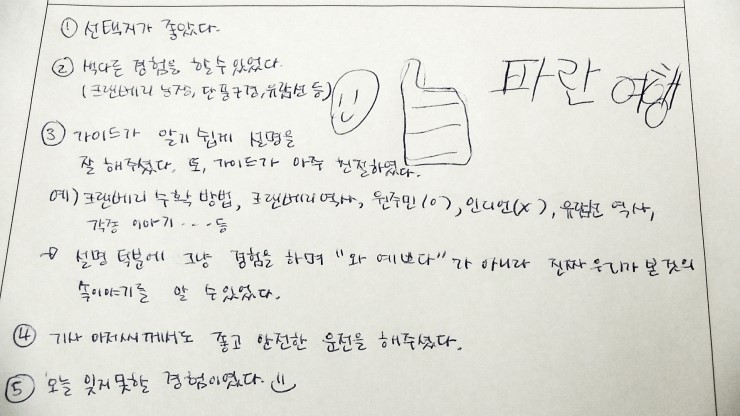 ① 선택지가 좋았다.
② 색다른 경험을 할 수 있었다.
(크랜베리 농장, 단풍구경, 유람선 등)
파란 여행
③ 가이드가 알기 쉽게 설명을
잘 해주셨다. 또, 가이드가 아주 친절하였다.
예) 크랜베리 수확 방법, 크랜베리 역사, 원주민(o), 인디언(x), 유람선 역사,
각종 이야기 ... 등
→ 설명 덕분에 그냥 경험을 하며 "와 예쁘다"가 아니라 진짜 우리가 본 것의
속이야기를 알 수 있었다.
④ 기사 아저씨께서도 좋고 안전한 운전을 해주셨다.
⑤ 오늘 잊지 못할 경험이였다.